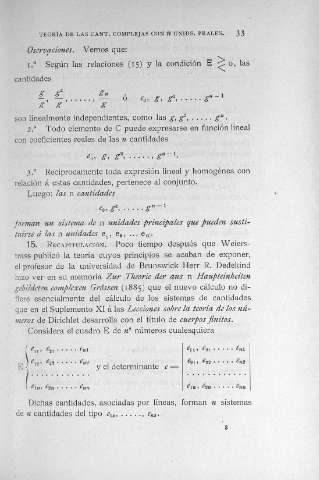 TEORÍA DE LAS CANT. COMPLEJAS CON N UNIDS. PRALES. 33
Observaciones. Vemos que:
1.ª Según las relaciones (15) y la condición Ξ ≷ 0, las
cantidades
g/g, g²/g, ......, gⁿ/g ó e₀, g, g², ...... gⁿ⁻¹
son linealmente independientes, como las g, g², ..... gⁿ.
2.ª Todo elemento de C puede expresarse en función lineal
con coeficientes reales de las n cantidades
e₀, g, g², ......, gⁿ⁻¹.
3.ª Recíprocamente toda expresión lineal y homogénea con
relación á estas cantidades, pertenece al conjunto.
Luego: las n cantidades
e₀, g², ...... gⁿ⁻¹
forman un sistema de n unidades principales que pueden susti-
tuirse á las n unidades e₁, e₂, ... eₙ.
15. RECAPITULACIÓN. Poco tiempo después que Weiers-
trass publicó la teoría cuyos principios se acaban de exponer,
el profesor de la universidad de Brunswick Herr R. Dedekind
hizo ver en su memoria Zur Theorie der aus n Haupteinheiten
gebildeten complexen Grössen (1885) que el nuevo cálculo no di-
fiere esencialmente del cálculo de los sistemas de cantidades
que en el Suplemento XI á las Lecciones sobre la teoría de los nú-
meros de Dirichlet desarrolla con el título de cuerpos finitos.
Considera el cuadro E de n² números cualesquiera
e₁₁, e₂₁ ..... eₙ₁ e₁₁, e₂₁ ..... eₙ₁
E e₁₂, e₂₂ ..... eₙ₂ y el determinante e = e₁₂, e₂₂ ..... eₙ₂
............ ............
e₁ₙ, e₂ₙ ..... eₙₙ e₁ₙ, e₂ₙ ..... eₙₙ
Dichas cantidades, asociadas por líneas, forman n sistemas
de n cantidades del tipo e₁ₛ, ......, eₙₛ.